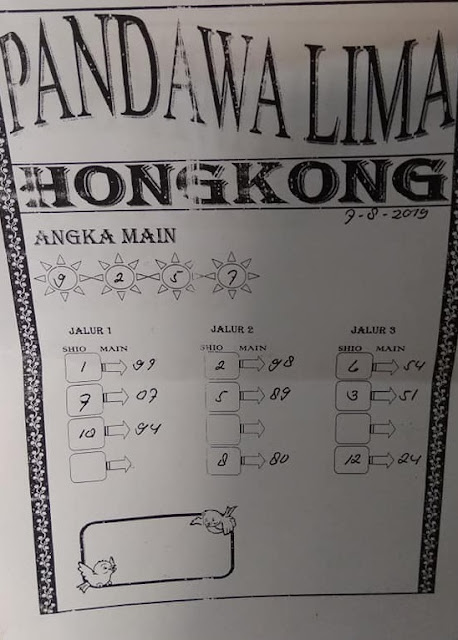 PANDAWA LIMA
HONGKONG
7-8-2019
ANGKA MAIN
9 2 5 7
JALUR 1 JALUR 2 JALUR 3
SHIO MAIN SHIO MAIN SHIO MAIN
1 99 2 98 6 54
7 07 5 89 3 51
10 94
8 80 12 24